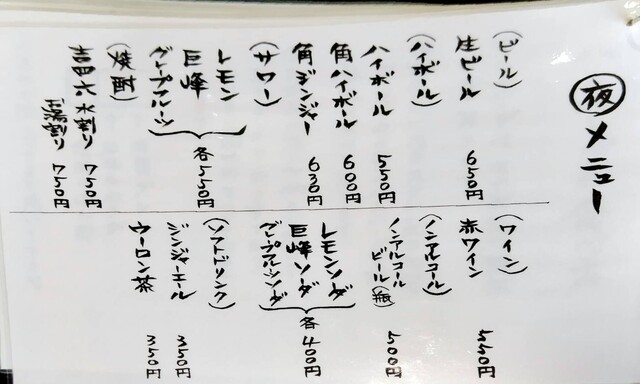 夜メニュー
(ビール)
生ビール 650円
(ハイボール)
ハイボール 550円
角ハイボール 600円
角ジンジャー 630円
(サワー)
レモン
巨峰
グレープフルーツ
各550円
(焼酎)
吉四六 水割り 750円
〃 お湯割り 750円
(ワイン)
赤ワイン 550円
(ノンアルコール)
ノンアルコール
ビール(瓶) 500円
レモンソーダ
巨峰ソーダ
グレープフルーツソーダ
各400円
(ソフトドリンク)
ジンジャーエール 350円
ウーロン茶 350円